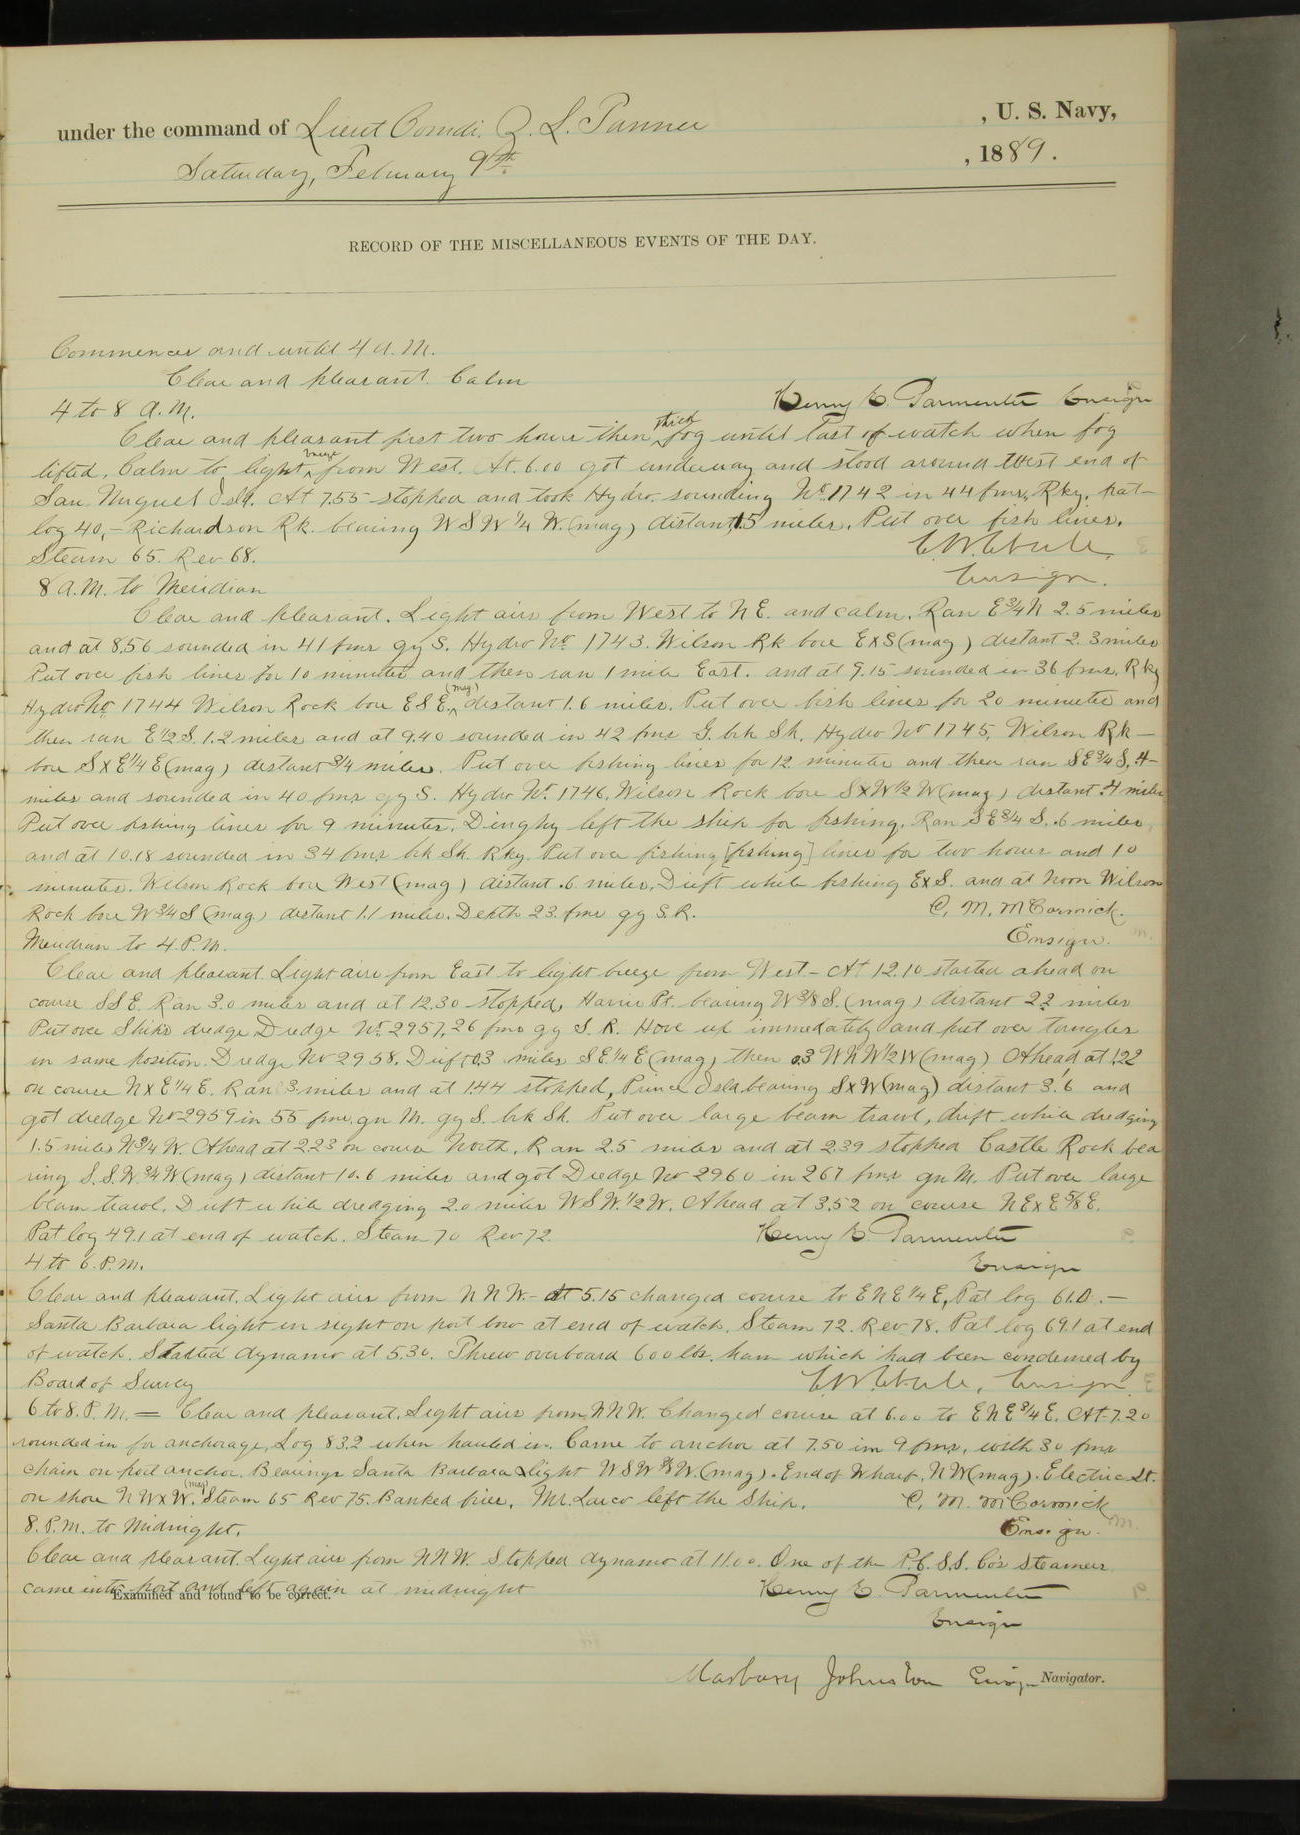 under the command of Lieut Comdr. Z. L. Tanner , U. S. Navy,
Saturday, February 9th. , 1889.
RECORD OF THE MISCELLANEOUS EVENTS OF THE DAY.
Commences and until 4 A.M.
Clear and pleasant. Calm
Henry E. Parmenter Ensign
4 to 8 A.M.
Clear and pleasant first two hours then thick fog until last of watch when fog
lifted. Calm to light breeze from West. At 6.00 got underway and stood around West end of
San Miguel Isld. At 7.55 stopped and took Hydro. sounding No. 1742 in 44 fms, Rky. pat-
log 40,- Richardson Rk. bearing W S W 1/4 W. (mag) distant 1.5 miles. Put over fish lines.
Steam 65. Rev 68.
Ensign.
8 A.M. to Meridian
Clear and pleasant. Light airs from West to N E. and calm. Ran E 3/4 N 2.5 miles
and at 8.56 sounded in 41 fms gy S. Hydro No 1743. Wilson Rk bore E x S (mag) distant 2.3 miles
Put over fish lines for 10 minutes and then ran 1 mile East. and at 9.15 sounded in 36 fms. Rky
Hydro No. 1744 Wilson Rock bore E S E. (mag) distant 1.6 miles. Put over fish lines for 20 minutes and
then ran E 1/2 S. 1.2 miles and at 9.40 sounded in 42 fms G. brk Sh. Hydro No 1745, Wilson Rk-
bore S x E 1/4 E (mag) distant 3/4 miles. Put over fishing lines for 12 minutes and then ran S E 3/4 S. .4-
miles and sounded in 40 fms gy S. Hydro No. 1746, Wilson Rock bore S x W 1/2 W (mag) distant .4 miles
Put over fishing lines for 9 minutes. Dinghy left the ship for fishing. Ran S E 3/4 S. .6 miles,
and at 10.18 sounded in 34 fms brk Sh. Rky. Put over fishing [fishing] lines for two hours and 10
minutes. Wilson Rock bore West (mag) distant .6 miles. Drift while fishing E x S. and at Noon Wilson
Rock bore W 3/4 S (mag) distant 1.1 miles. Depth 23. fms gy S. R. C. M. McCormick.
Ensign.
Meridian to 4 P.M.
Clear and pleasant. Light airs from East to light breeze from West- At 12.10 started ahead on
course S S E. Ran 3.0 miles and at 12.30 stopped, Harris Pt. bearing W 3/8 S. (mag) distant 2.2 miles
Put over Ship's dredge Dredge No. 2957, 26 fms gy S. R. Hove up immediately and put over tangles
in same position. Dredge No 2958. Drift 0.3 miles S E 1/4 E (mag) then 0.3 W N W 1/2 W (mag) Ahead at 1.22
on course N x E 1/4 E. Ran 3. miles and at 1.44 stopped, Prince Isld. bearing S x W (mag) distant 3.6 and
got dredge No 2959 in 55 fms. gn M. gy S. brk Sh. Put over large beam trawl, drift while dredging
1.5 miles N 3/4 W. Ahead at 2.23 on course North. Ran 2.5 miles and at 2.39 stopped Castle Rock bea
ring S. S. W. 3/4 W (mag) distant 10.6 miles and got Dredge No 2960 in 267 fms gn M. Put over large
beam trawl. Drift while dredging 2.0 miles W S W. 1/2 W. Ahead at 3.52 on course N E x E 5/8 E.
Pat log 49.1 at end of watch. Steam 70 Rev 72. Henry E. Parmenter
Ensign
4 to 6. P.M.
Clear and pleasant. Light airs from N N W.- At 5.15 changed course to E N E 1/4 E, Pat log 61.0.-
Santa Barbara light in sight on port bow at end of watch. Steam 72. Rev 78. Pat log 69.1 at end
of watch. Started dynamo at 5.30. Threw overboard 600 lbs. ham which had been condemned by
Board of Survey
Ensign
6 to 8. P. M. = Clear and pleasant. Light airs from N N W. Changed course at 6.00 to E N E 3/4 E. At 7.20
rounded in for anchorage, Log 83.2 when hauled in. Came to anchor at 7.50 in 9 fms, with 30 fms
chain on port anchor. Bearings Santa Barbara light W S W 3/8 W. (mag). End of Wharf, N W (mag). Electric Lt.
on shore N W x W. (mag) Steam 65 Rev 75. Banked fires. Mr. Larco left the Ship. C. M. McCormick
Ensign.
8. P.M. to Midnight.
Clear and pleasant. Light airs from N N W. Stopped dynamo at 11.00. One of the P. C. S.S. Co's Steamers
came into port and left again at midnight Henry E. Parmenter
Examined and found to be correct.
Ensign
Marbury Johnston Ensign Navigator.